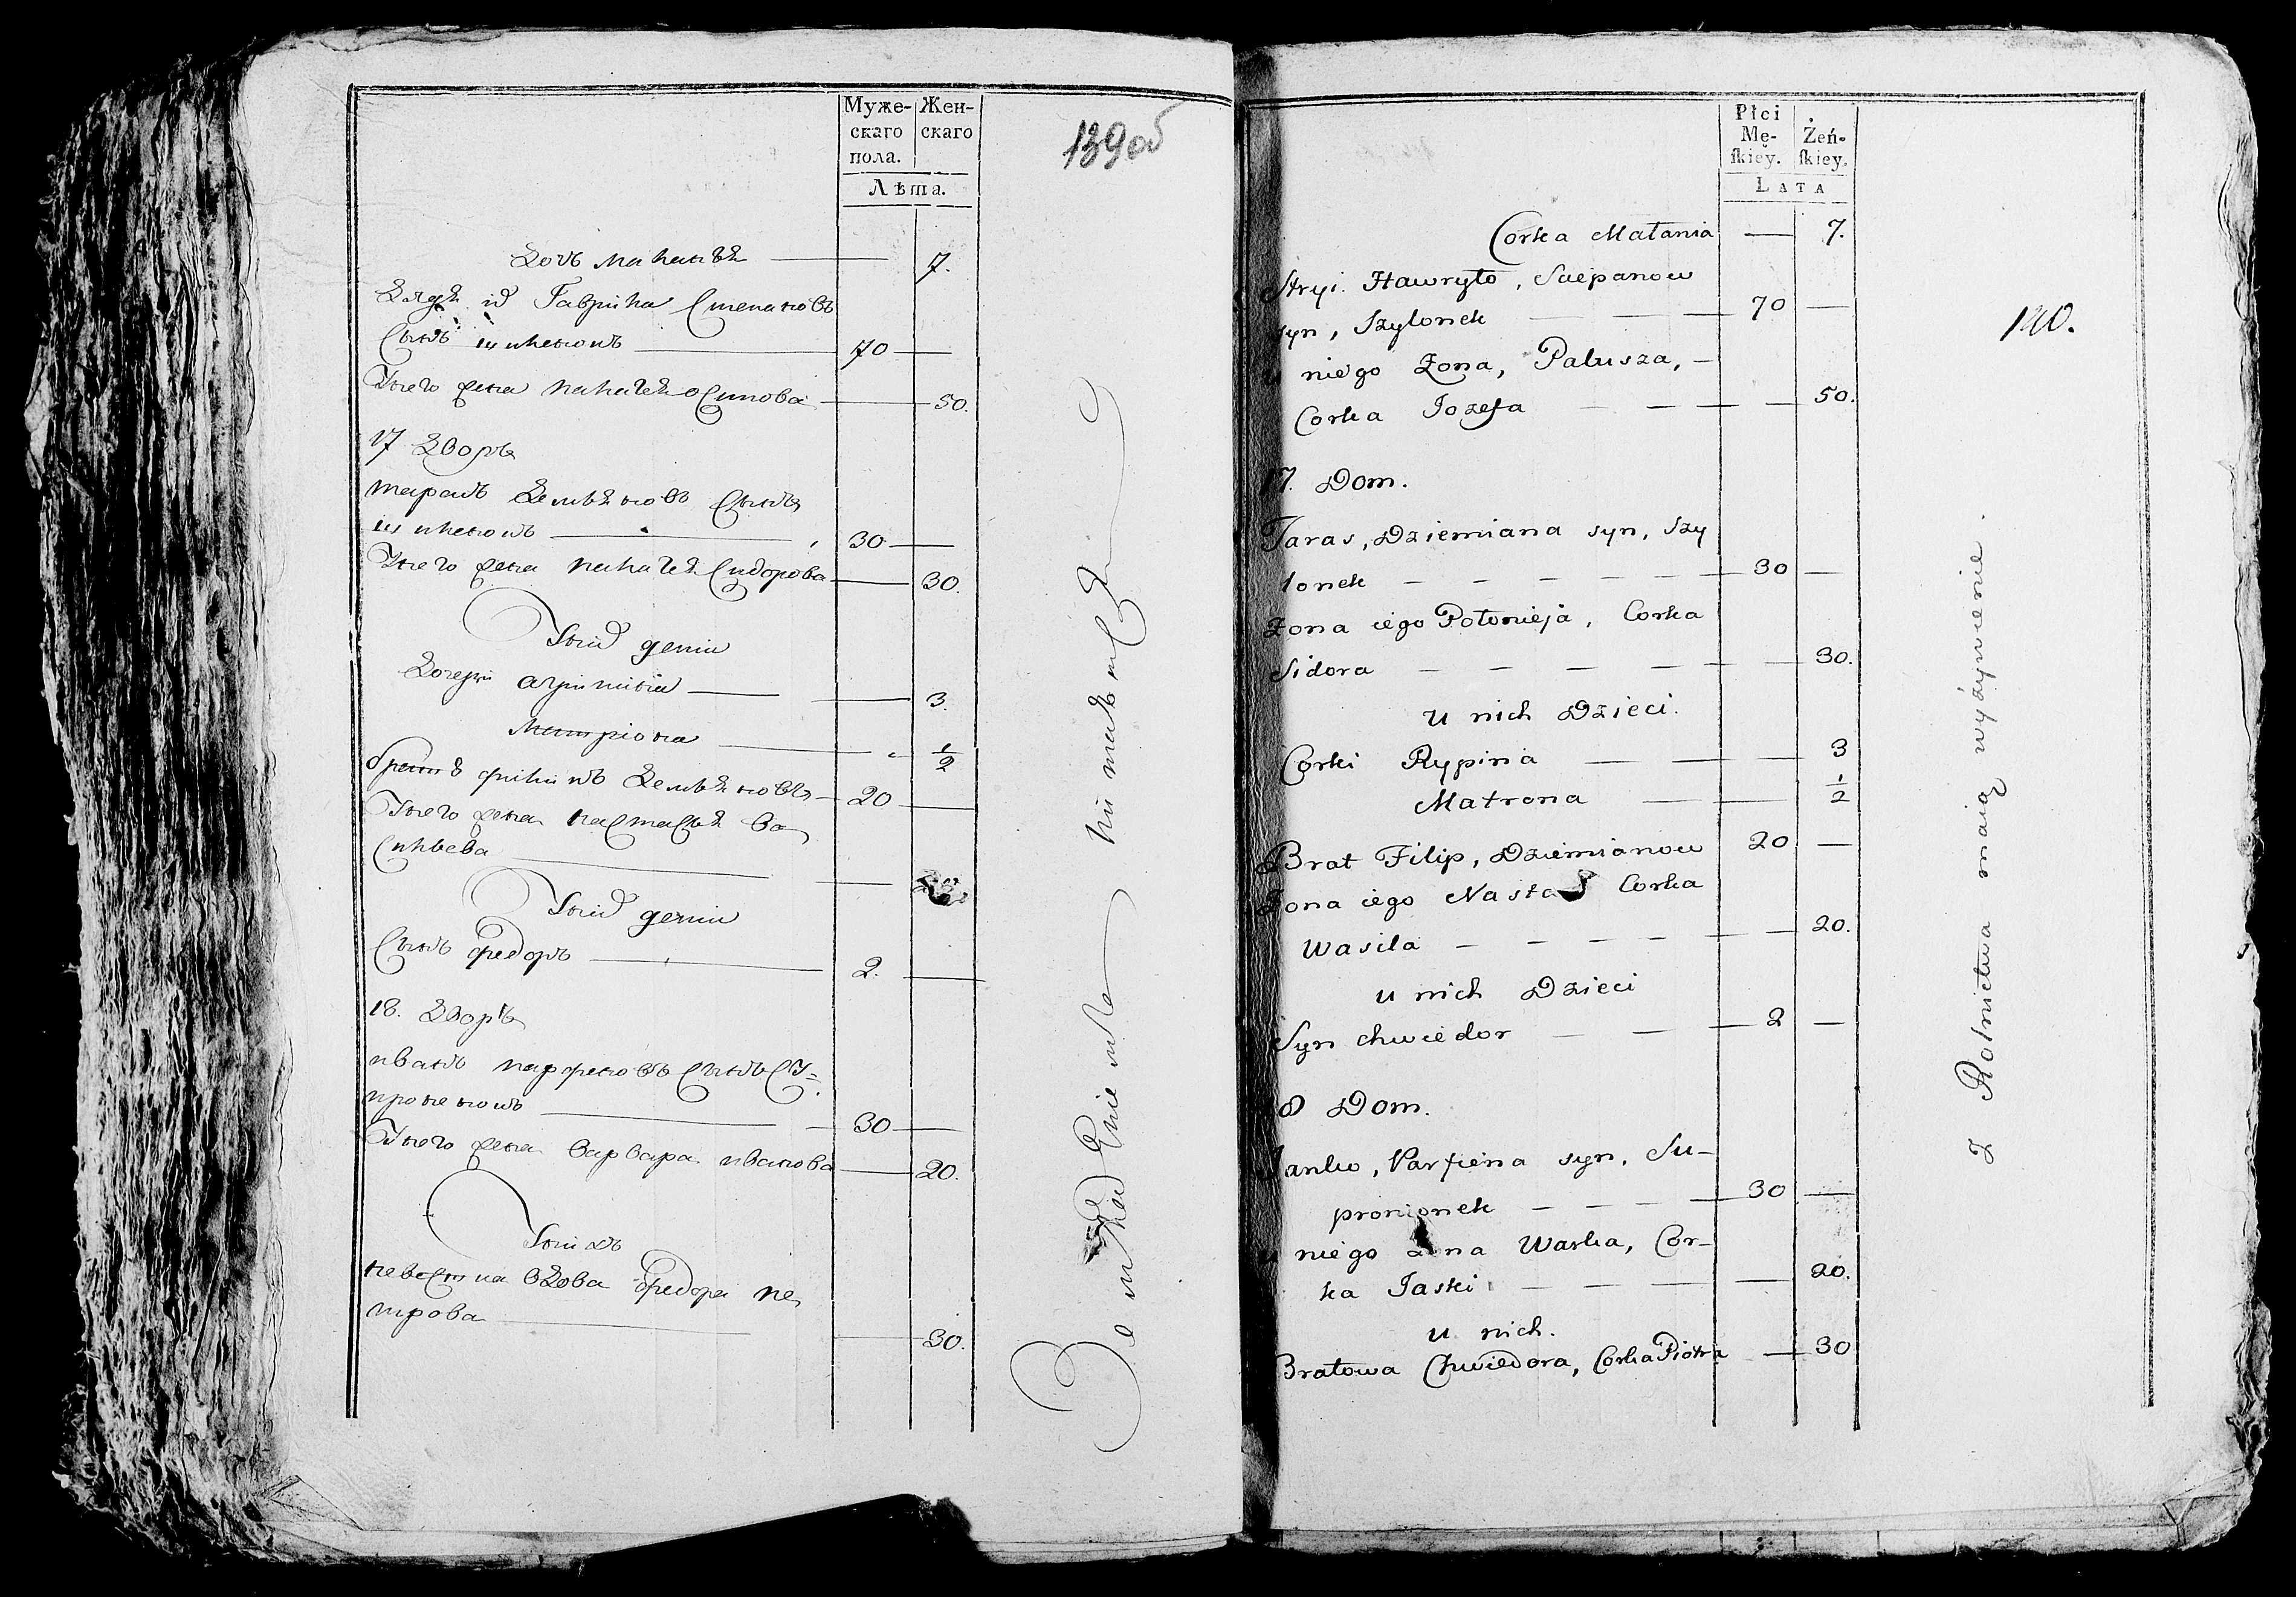 Муже-
скаго
пола.
Жен-
скаго
Лѣта.
139 об
Дочь маланья 7.
Дядя ... Гаврила Степановъ
Сынъ шиленокъ 70
Унего жена палагея осипова 50.
17 Дворъ
тарасъ Демьяновъ Сынъ
шиленокъ 30
Унего жена палагея Сидорова 30.
Уних дети
Дочери агрипина 3.
Матриона 1/2
братъ филипъ Демьяновъ 20
Унего жена настасья ва
сильева
Уних дети
Сынъ федоръ 2.
18. Дворъ
иванъ парфеновъ Сынъ Су=
проненокъ 30
Унего жена варвара иванова 20.
Унихъ
невестка вдова федора пе
трова 30.
Płci
Mę-
skiey.
Żeń-
skiey.
LATA
140.
Corka Małania 7.
Stryi Hawryło, Sciepanow
syn, Szylonek 70
niego Żona, Pałusza,
Corka Jozefa 50.
17. Dom.
Taras, Dziemiana syn, Szy
lonek 30
Zona iego Połonieja, Corka
Sidora 30.
u nich Dzieci.
Corki Rypina 3
Matrona 1/2
Brat Filip, Dziemianow 20
Zona iego Nasta Corka
Wasila 20.
u nich Dzieci
Syn Chwiedor 2
8 Dom.
Janko, Parfiena syn, Su-
pronionek 30
niego Zona Warka, Cor-
ka Jaski 20.
u nich.
Bratowa Chwiedora, Corka Piotra 30
Z Rolnictwa maią wyżywienie.